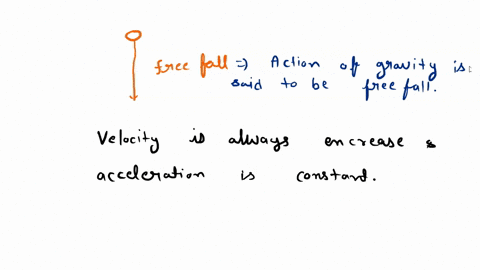 free fall => Action of gravity is
said to be free fall.
Velocity is always encrease &
acceleration is constant.